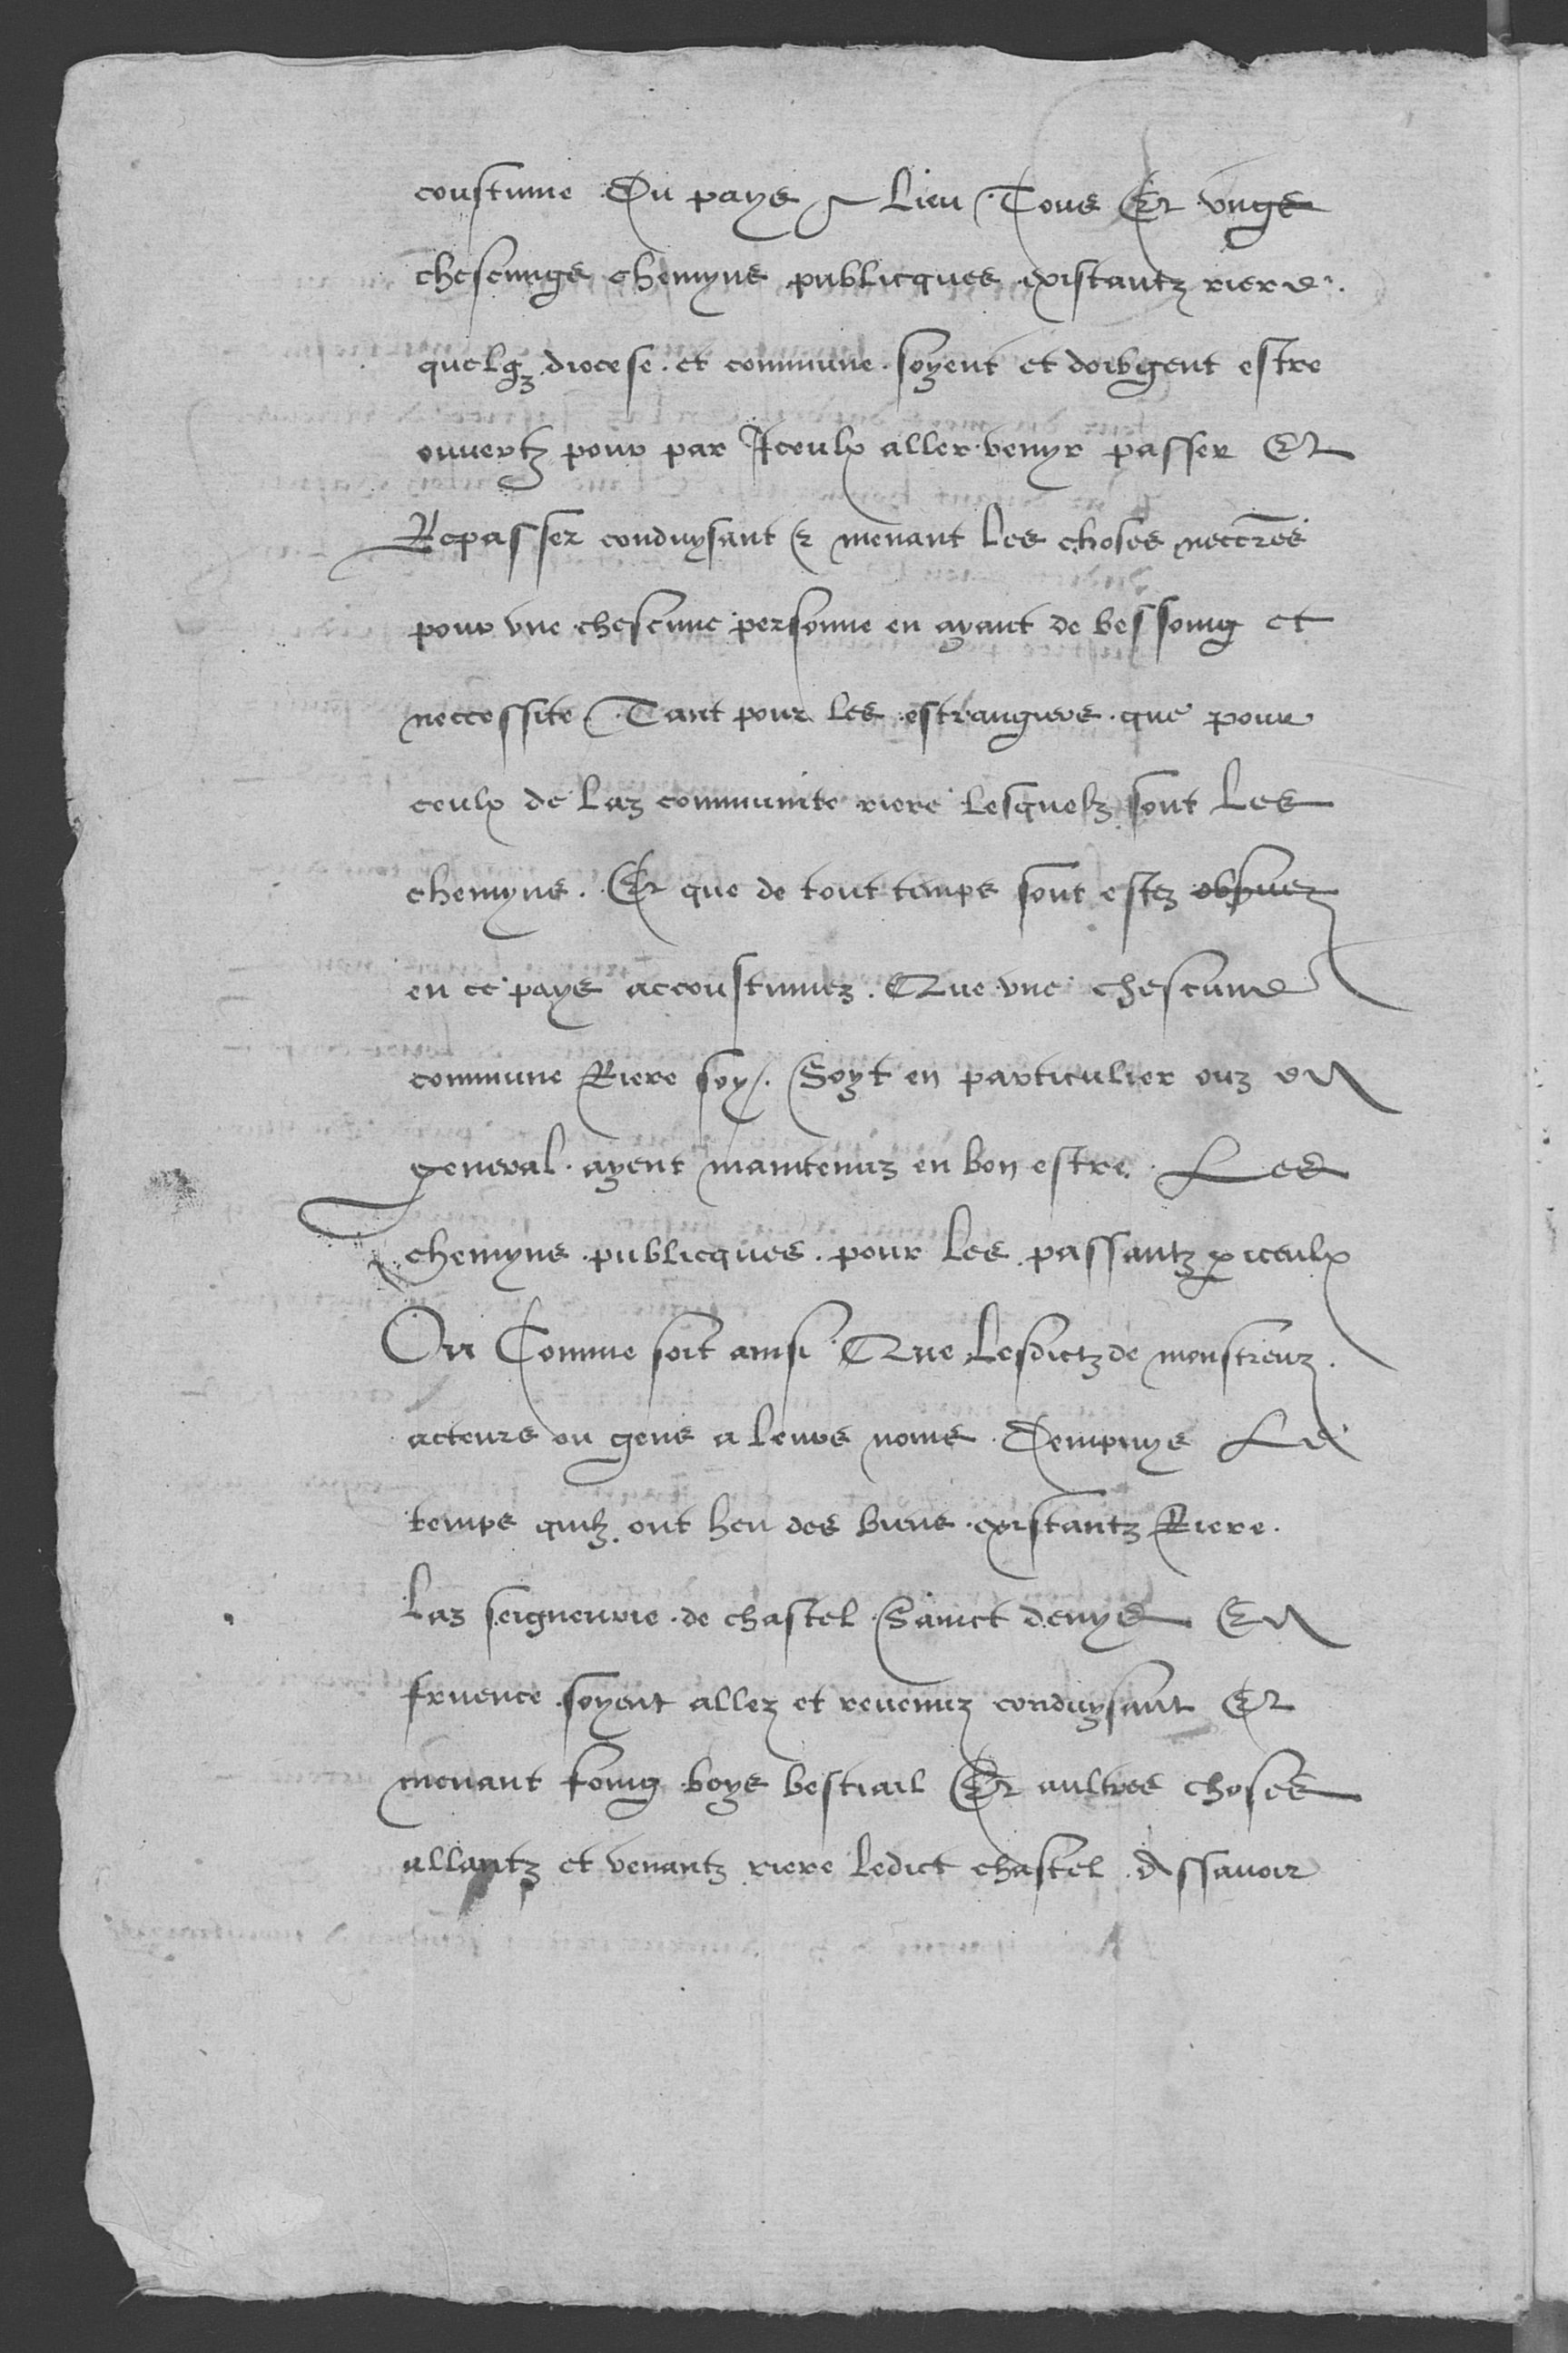 coustume Du pays & lieu Tous Et ungs
chescungs chemyns publicques existantz riere
quelq3 diocese et commune soyent et doibgent estre
ouvertz pour par Iceulx aller venyr passer Et
Repasser conduysant & menant les choses neccres
pour une chescune personne en ayant de bessoing et
neccessite Tant pour les estrangiers que pour
ceulx de laz communite riere lesquelz sont les
chemyns. Et que de tout temps sont estez obsvez
en ce pays accoustumez. Que une chescune
commune Riere soy. Soyt en particulier ouz en
general ayent maintenuz en bon estre Les
chemyns publicques pour les passantz p iceulx
Or Comme soit ainsi Que lesdictz de monstreuz
acteurs ou gens a leurs noms Dempuys Le
temps quilz ont heu des biens existantz Riere
laz seigneurie de chastel Sainct denys En
fruence soyent allez et revenuz conduysant Et
menant foing boys bestiail Et aultres choses
allantz et venantz riere ledict chastel Assavoir